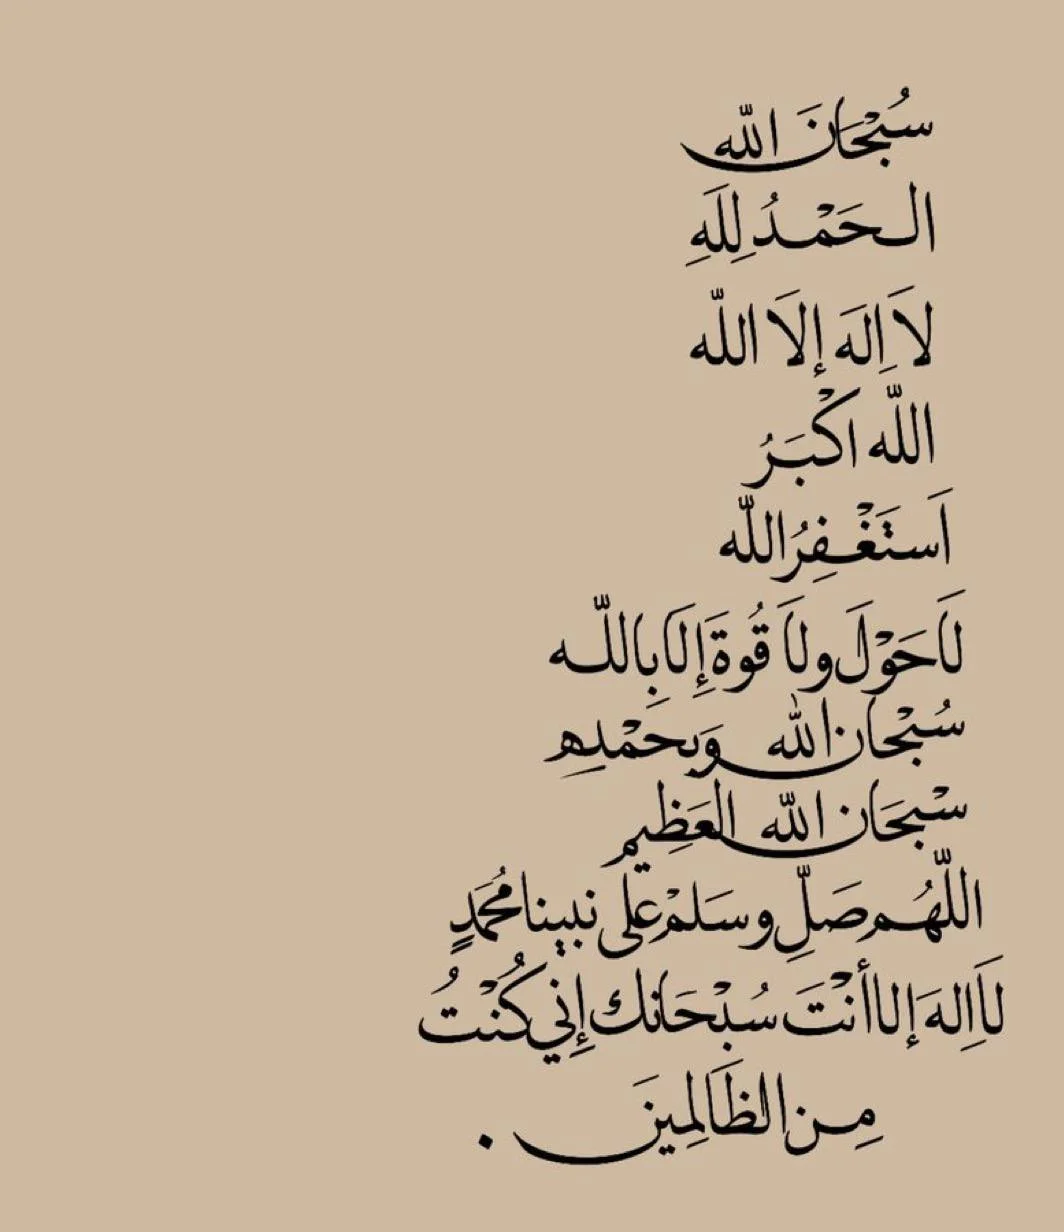 سُبْحَانَ اللّه
الـحَمْـدُ لِلَهِ
لاَ اِلَهَ إِلاَ اللّه
اللّه اكْبَـرُ
اَستَغْـفِرُ اللّه
لَاحَوْلَ ولَا قُوةَ إِلَا بِاللّـه
سُبْحان الله وَبحَمْدِهِ
سْبحَان اللّه العَظِيم
اللّهُـم صَلِّ وسَلمْ على نبينا محُمَدٍ
لَا اِلهَ إلا أنْتَ سُبْحَانك إِني كُنْتُ
مِـن الظَالمِينَ .